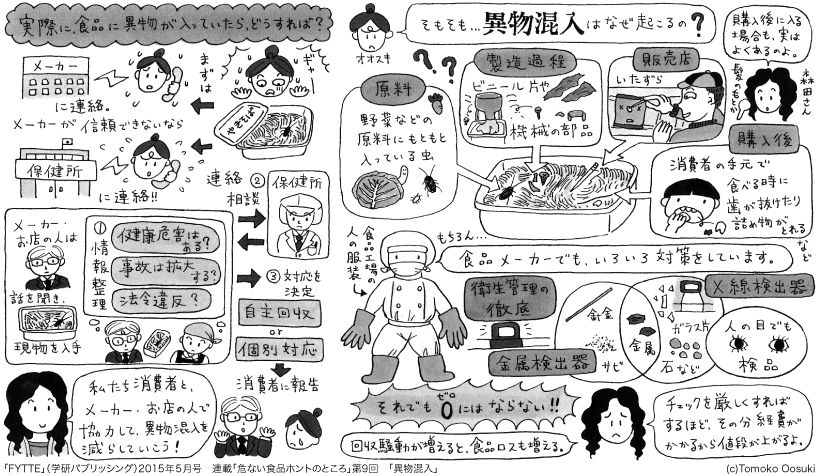 そもそも…異物混入はなぜ起こるの?
オオスキ
購入後に入る
場合も、実は
よくあるのよ。
森田さん
原料
野菜などの
原料にもともと
入っている虫
製造過程
ビニール片や
機械の部品
販売店
いたずら
購入後
消費者の手元で
食べる時に
歯が抜けたり
詰め物がとれる
など
食品工場の
人の服装
もちろん…
食品メーカーでも、いろいろ対策をしています。
衛生管理の
徹底
金属検出器
針金
サビ
金属
X線検出器
ガラス片
石など
人の目でも
検品
それでも0にはならない!!
ゼロ
回収騒動が増えると、食品ロスも増える。
チェックを厳しくすれば
するほど、その分経費が
かかるから値段が上がるよ。
実際に、食品に異物が入っていたら、どうすれば?
ギャー
やきそば
まずは
メーカー
に連絡。
メーカーが信頼できないなら
保健所
に連絡!!
メーカー・
お店の人は
話を聞き、
現物を入手
①情報整理
健康危害は
ある?
事故は拡大
する?
法令違反?
連絡
相談
②
保健所
③対応を
決定
自主回収
or
個別対応
消費者に報告
私たち消費者と、
メーカー・お店の人で
協力して、異物混入を
減らしていこう!
「FYTTE」(学研パブリッシング)2015年5月号 連載「危ない食品ホントのところ」第9回 「異物混入」
(c)Tomoko Oosuki